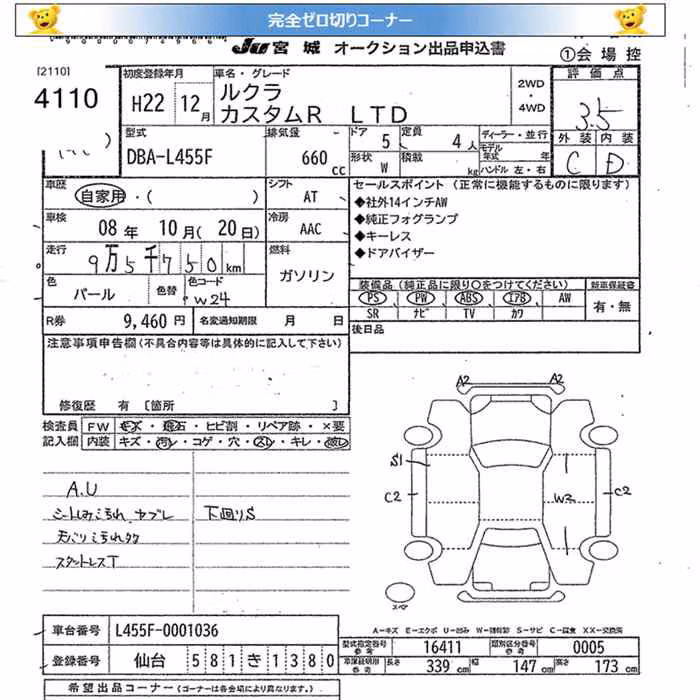 完全ゼロ切りコーナー
JU 宮城 オークション出品申込書
①会場控
[2110]
4110
初度登録年月 H22 12月
車名・グレード ルクラ カスタムR LTD
2WD・4WD
評価点 3.5
外装 内装
C D
型式 DBA-L455F
排気量 660 cc
ドア 5
定員 4人
ディーラー・並行
形状 W
積載 kg
モデル年式 年
ハンドル 左・右
車歴 自家用・( )
シフト AT
セールスポイント (正常に機能するものに限ります)
◆社外14インチAW
◆純正フォグランプ
◆キーレス
◆ドアバイザー
車検 08年 10月(20日)
冷房 AAC
走行 9万5千750km
燃料 ガソリン
色 パール 色替 色コード W24
装備品 (純正品に限り○をつけてください) 新車保証書
PS PW ABS エアB AW 有・無
SR ナビ TV カワ
R券 9,460円 名変通知期限 月 日
後日品
注意事項申告欄(不具合内容等は具体的に記入して下さい)
修復歴 有 [箇所 ]
検査員記入欄
FW キズ・飛石・ヒビ割・リペア跡・×要
内装 キズ・汚レ・コゲ・穴・スレ・キレ・破レ
A.U
シートしみ汚れ、ヤブレ 下回りS
天バリ汚れタタ
スタットレスT
A2 A2
S1
C2 W2 C2
スペア
A-キズ E-エクボ U-凹み W-補修跡 S-サビ C-腐食 XX-交換済
車台番号 L455F-0001036
登録番号 仙台 581き1380
型式指定番号 参考 16411 類別区分番号 参考 0005
車庫証明用 参考 長さ 339cm 幅 147cm 高さ 173cm
希望出品コーナー (コーナーは各会場により異なります。)